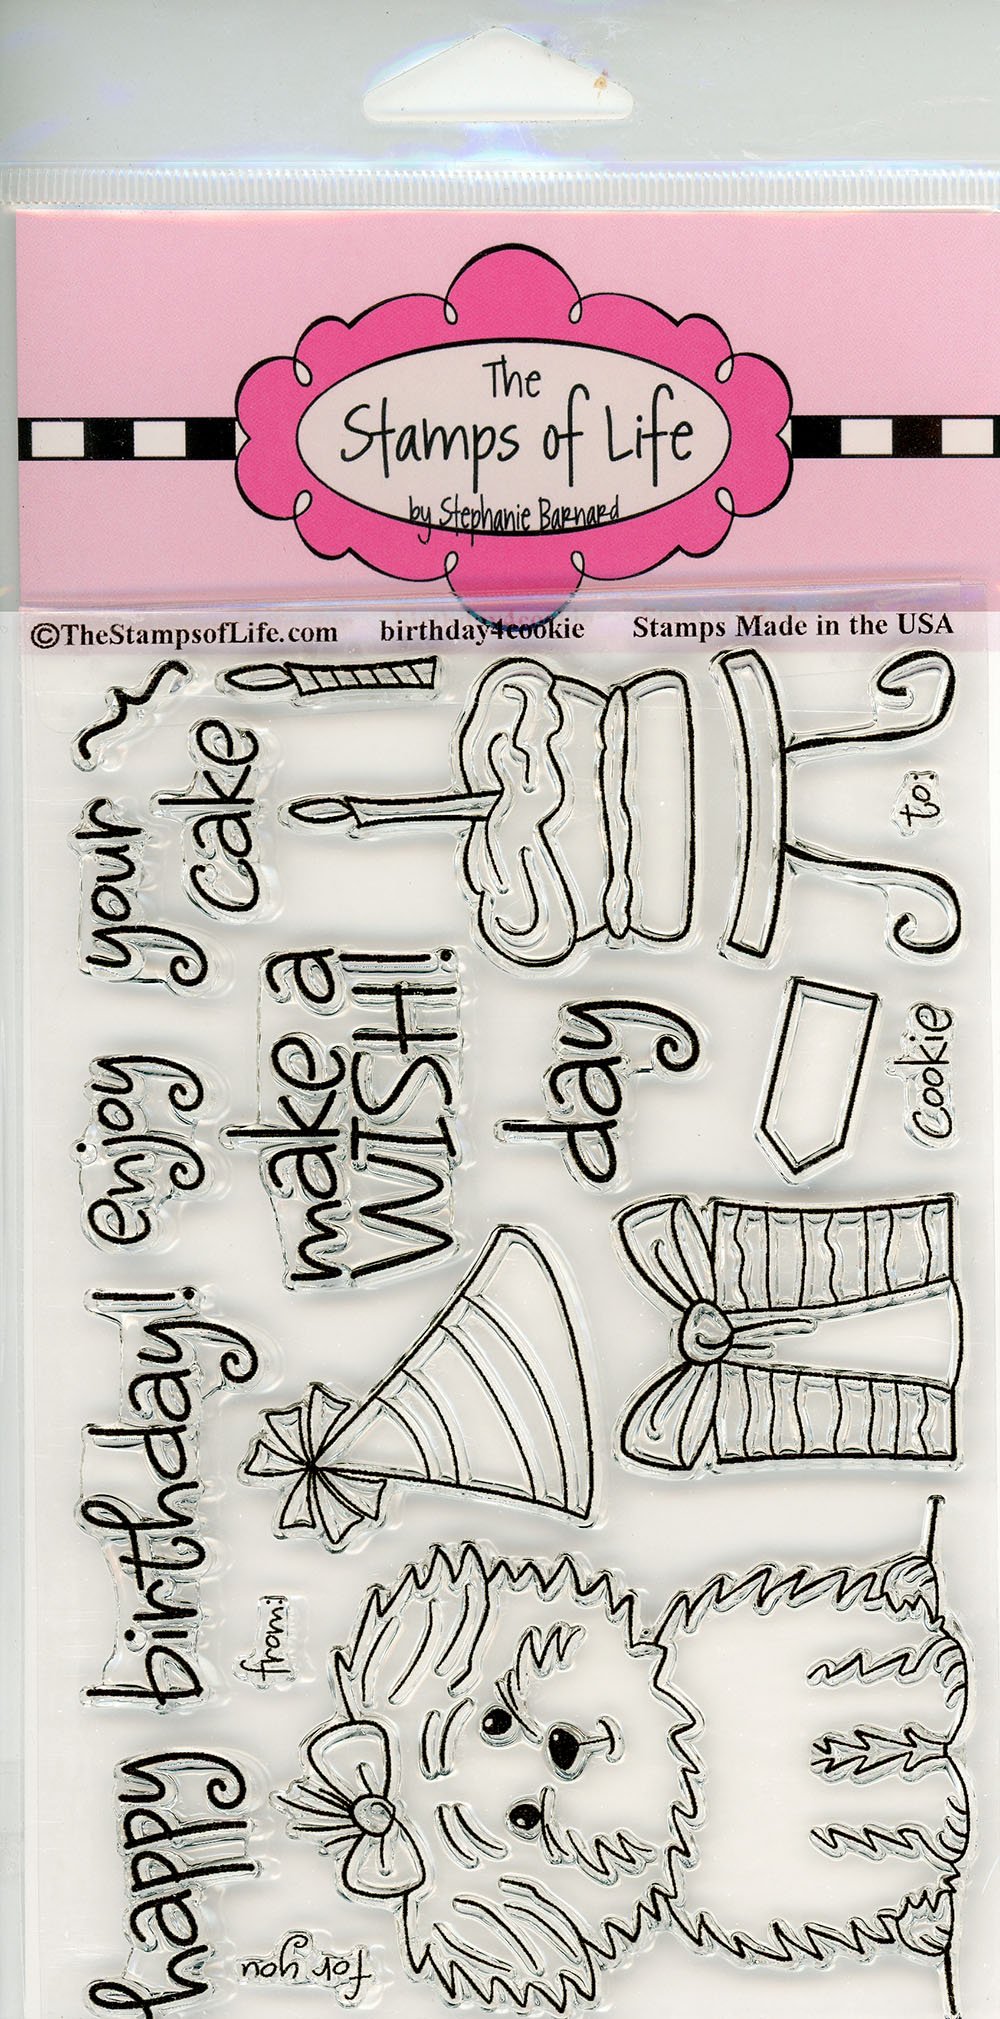 The
Stamps of Life
by Stephanie Barnard
©TheStampsofLife.com birthday4cookie Stamps Made in the USA
happy birthday! enjoy your
cake
make a
WISH!
day
from:
for you
to:
cookie